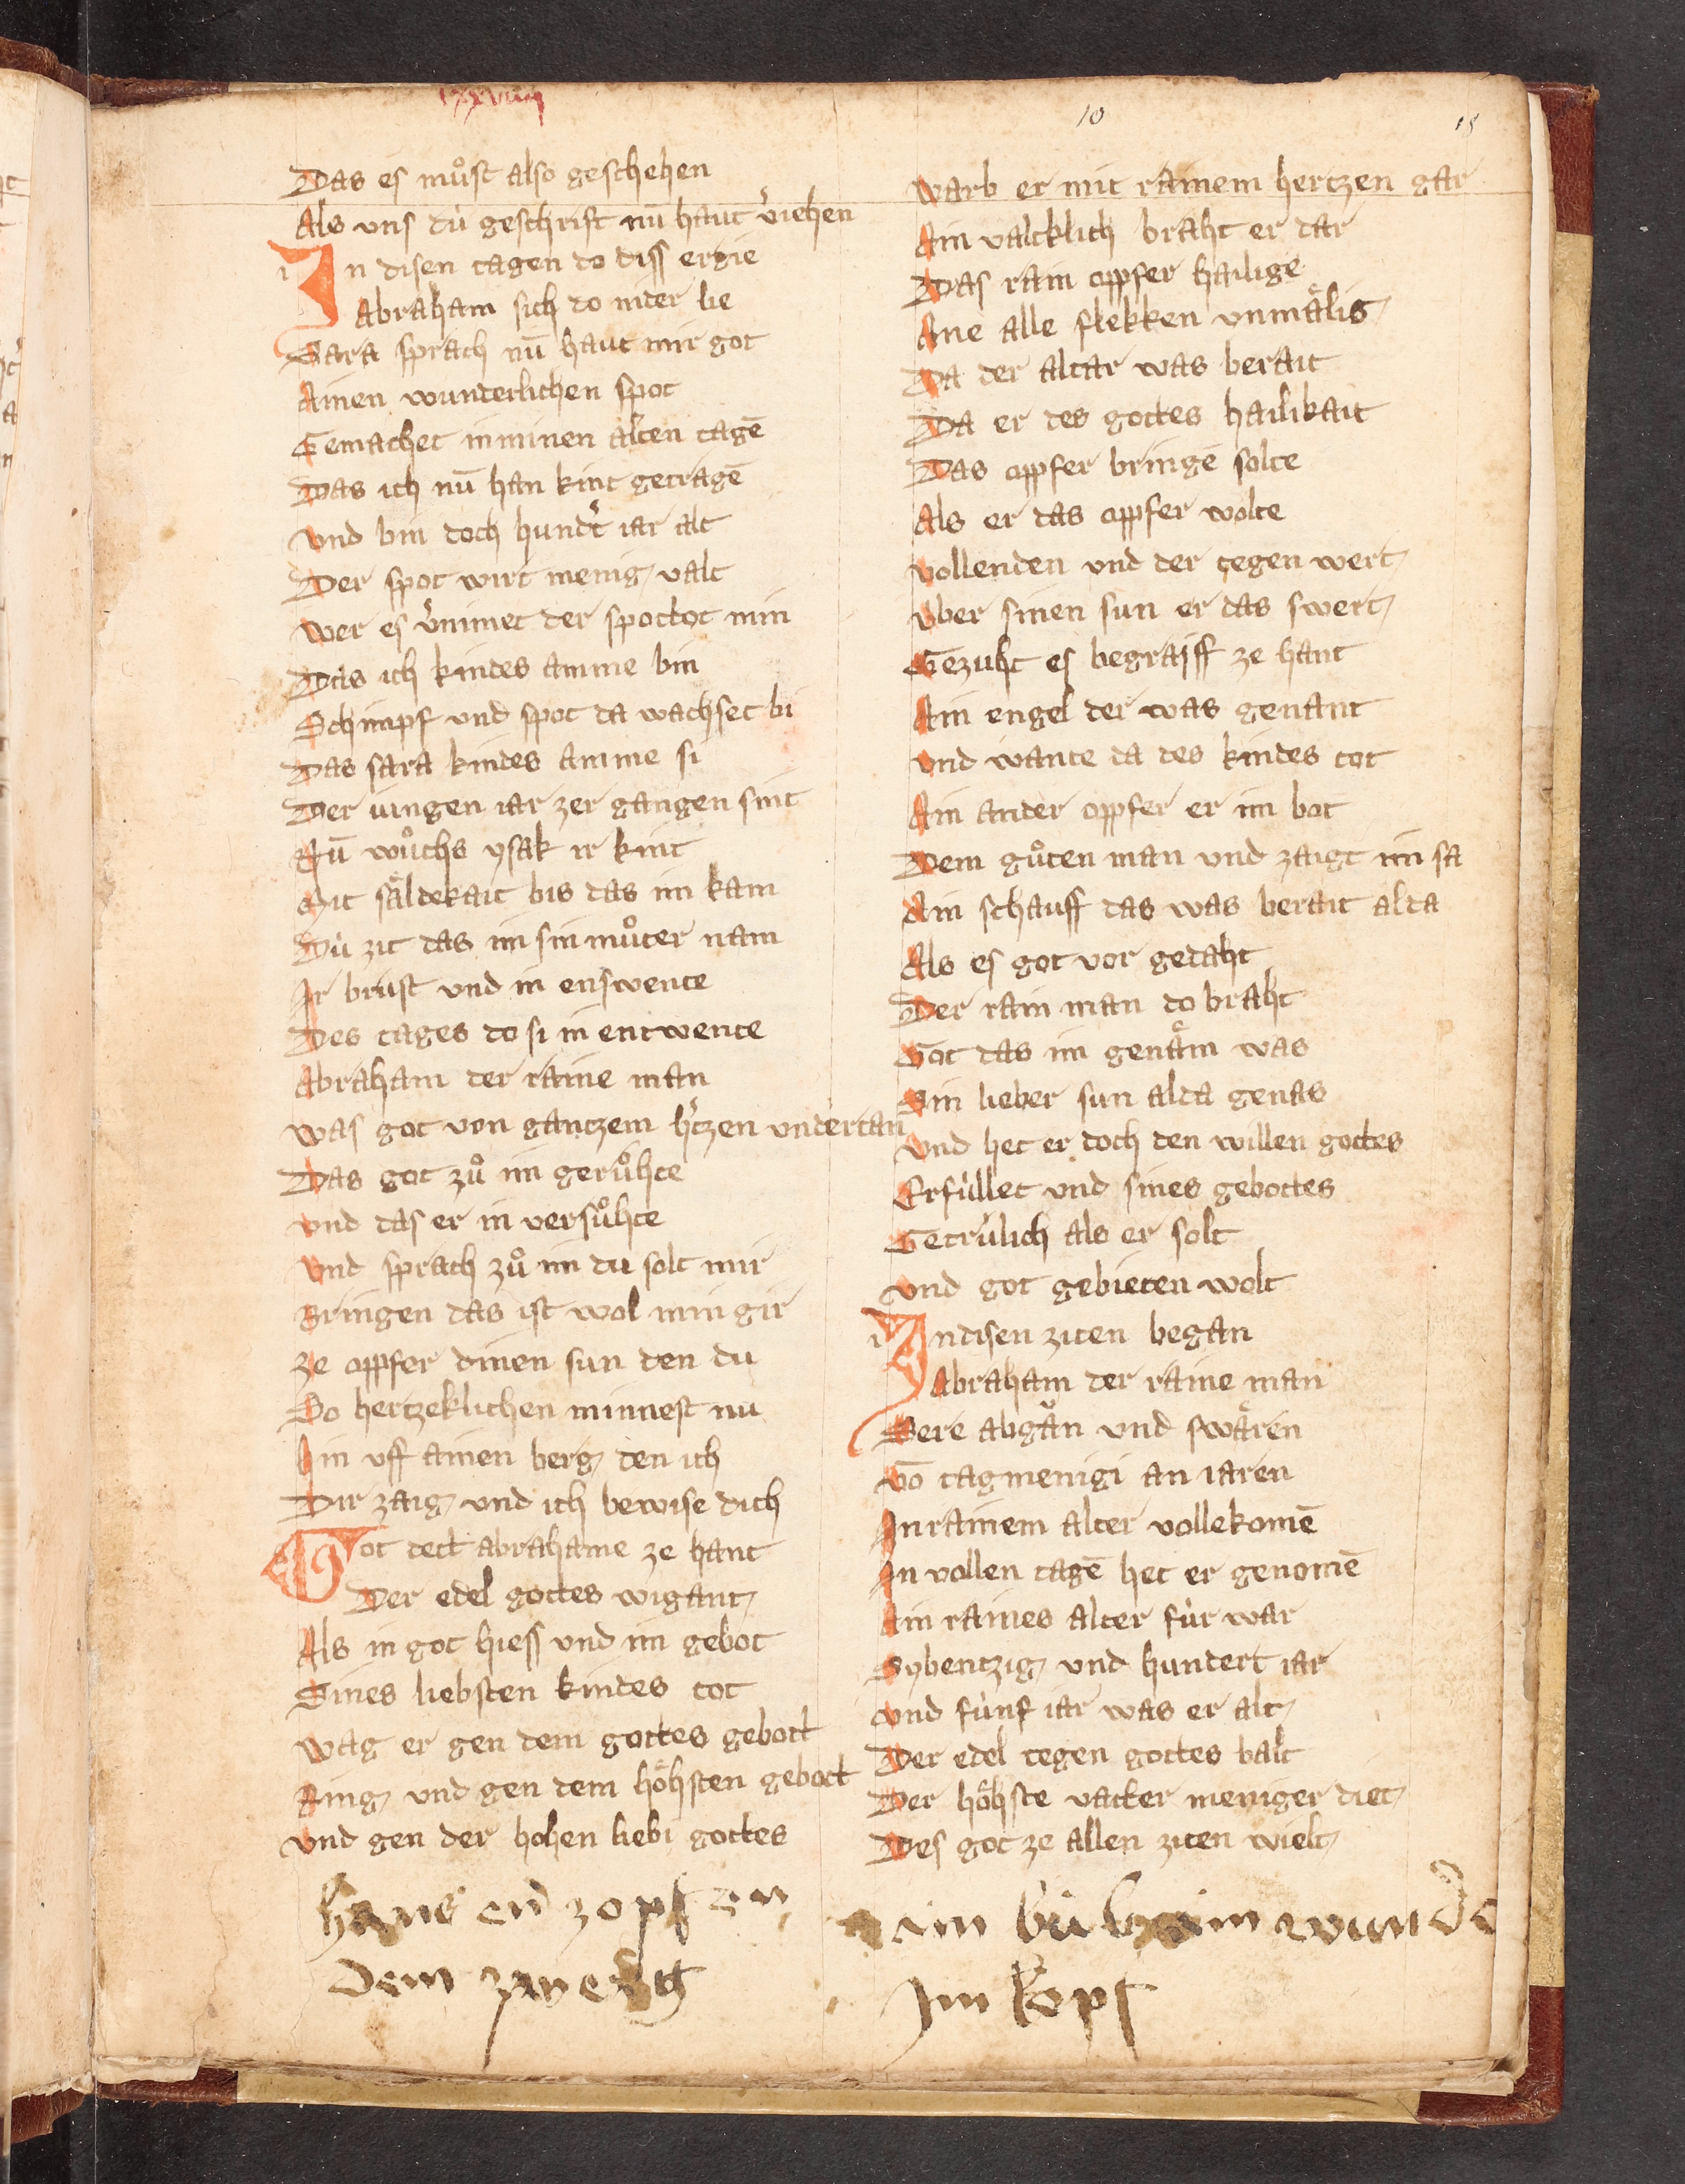 10
Das es muͦst also geschehen
Als vns dú geschrift nū haut v̓iehen
In disen tagen do diss ergie
Abraham sich do nider lie
Sara sprach nū haut mir got
Ainen wunderlichen spot
Gemachet in minen alten tagē
Das ich nū han kint getragē
Vnd bin doch hundt̓ iar alt
Der spot wirt menig valt
Wer es v̓nimet der spottot min
Das ich kindes amme bin
Schimpf vnd spot da wachset bi
Das sara kindes amme si
Der iungen iar zer gangen sint
Nū wuͦchs ysak ir kint
Mit sӓldekait bis das im kam
Dú zit das im sin muͦter nam
Ir brust vnd in enswente
Des tages do si in entwente
Abraham der raine man
Was got von gantzem h̓tzen vndertan
Das got zuͦ im geruͦhte
Vnd das er in versuͦhte
Vnd sprach zuͦ im du solt mir
Bringen das ist wol min gir
Ze oppfer dinen sun den du
So hertzeklichen minnest nu
Hin vff ainen berg den ich
Dir zaig vnd ich bewise dich
Got dett abrahame ze hant
Der edel gottes wigant
Als in got hiess vnd im gebot
Sines liebsten kindes tot
Wag er gen dem gottes gebott
Ring vnd gen dem hӧhsten gebott
Vnd gen der hohen liebi gottes
hans en zopf an
dem zwerg
Warb er mit rainem hertzen gar
Ain valcklich braht er dar
Das rain oppfer hailige
Ane alle flekken vnmӓlig
Da der altar was berait
Da er des gottes hailikait
Das oppfer bringē solte
Als er das oppfer wolte
Vollenden vnd der tegen wert
Vber sinen sun er das swert
Gezuht es begraiff ze hant
Ain engel der was genant
Vnd wante da des kindes tot
Ain ander oppfer er im bot
Dem guͦten man vnd zaigt im sa
Ain schauff das was berait alda
Als es got vor gedaht
Der rain man do braht
Got das im genӓm was
Sin lieber sun alda genas
Vnd het er doch den willen gottes
Erfúllet vnd sines gebottes
Getrúlich als er solt
Vnd got gebieten wolt
In disen ziten began
Abraham der raine man
Sere abgӓn vnd swӓren
Vō tag menigi an iaren
In rainem alter vollekomē
In vollen tagē het er genomē
Ain raines alter fúr war
Sybentzig vnd hundert iar
Vnd fúnf iar was er alt
Der edel tegen gottes balt
Der hӧhste vatter meniger diet
Des got ze allen ziten wielt
Im kopf